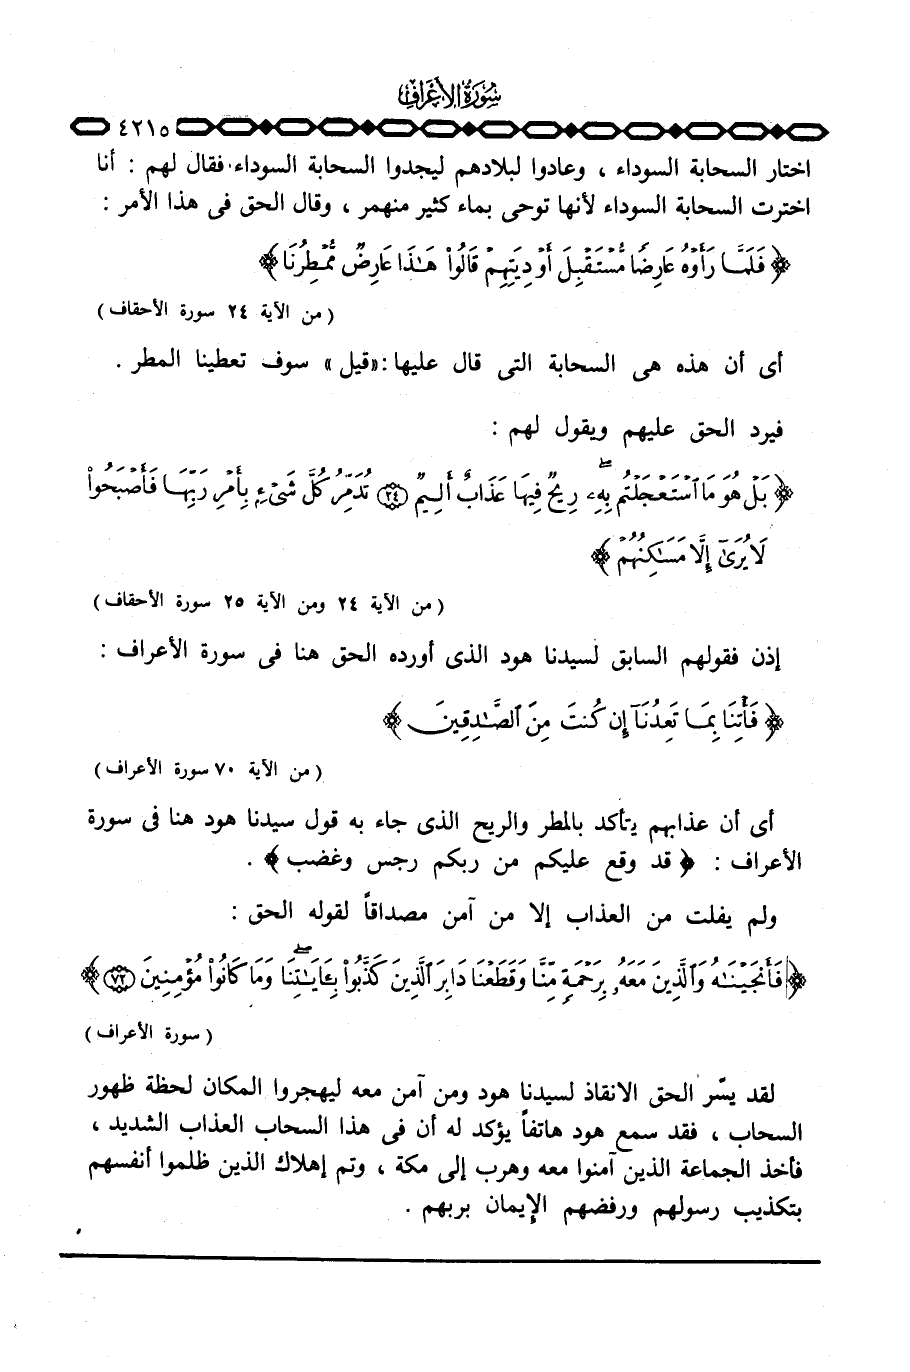 سورة الأعراف
٤٢١٥
اختار السحابة السوداء ، وعادوا لبلادهم ليجدوا السحابة السوداء فقال لهم : أنا
اخترت السحابة السوداء لأنها توحى بماء كثير منهمر ، وقال الحق فى هذا الأمر :
﴿ فَلَمَّا رَأَوْهُ عَارِضًا مُّسْتَقْبِلَ أَوْدِيَتِهِمْ قَالُوا۟ هَـٰذَا عَارِضٌ مُّمْطِرُنَا ﴾
( من الآية ٢٤ سورة الأحقاف )
أى أن هذه هى السحابة التى قال عليها : «قيل» سوف تعطينا المطر .
فيرد الحق عليهم ويقول لهم :
﴿ بَلْ هُوَ مَا ٱسْتَعْجَلْتُم بِهِۦ ۖ رِيحٌ فِيهَا عَذَابٌ أَلِيمٌ ﴿٢٤﴾ تُدَمِّرُ كُلَّ شَىْءٍۭ بِأَمْرِ رَبِّهَا فَأَصْبَحُوا۟
لَا يُرَىٰٓ إِلَّا مَسَـٰكِنُهُمْ ﴾
( من الآية ٢٤ ومن الآية ٢٥ سورة الأحقاف )
إذن فقولهم السابق لسيدنا هود الذى أورده الحق هنا فى سورة الأعراف :
﴿ فَأْتِنَا بِمَا تَعِدُنَآ إِن كُنتَ مِنَ ٱلصَّـٰدِقِينَ ﴾
( من الآية ٧٠ سورة الأعراف )
أى أن عذابهم يتأكد بالمطر والريح الذى جاء به قول سيدنا هود هنا فى سورة
الأعراف : ﴿ قد وقع عليكم من ربكم رجس وغضب ﴾ .
ولم يفلت من العذاب إلا من آمن مصداقاً لقوله الحق :
﴿ فَأَنجَيْنَـٰهُ وَٱلَّذِينَ مَعَهُۥ بِرَحْمَةٍ مِّنَّا وَقَطَعْنَا دَابِرَ ٱلَّذِينَ كَذَّبُوا۟ بِـَٔايَـٰتِنَا ۖ وَمَا كَانُوا۟ مُؤْمِنِينَ ﴿٧٢﴾ ﴾
( سورة الأعراف )
لقد يسّر الحق الانقاذ لسيدنا هود ومن آمن معه ليهجروا المكان لحظة ظهور
السحاب ، فقد سمع هود هاتفاً يؤكد له أن فى هذا السحاب العذاب الشديد ،
فأخذ الجماعة الذين آمنوا معه وهرب إلى مكة ، وتم إهلاك الذين ظلموا أنفسهم
بتكذيب رسولهم ورفضهم الإيمان بربهم .